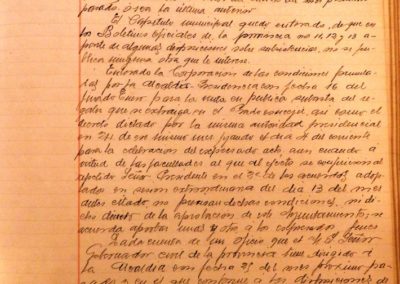 pasado, o sea la última anterior.
El Capítulo municipal quedó enterado, de que en
los Boletines oficiales de la provincia nos 11, 12 y 13 a
parte de algunas disposiciones sobre subsistencias, no se pu
blica ninguna otra que le interese.
Enterada la Corporación de las condiciones formula
das por la Alcaldía Presidencia con fecha 16 del
pasado Enero para la venta en pública subasta del
que se extraiga en el así como el
decreto dictado por la misma autoridad presidencial
en 24 de ese mismo mes fijando el día 4 del corriente
para la celebración del expresado acto, aun cuando a
virtud de las facultades al que al efecto se confirieron al
repetido Señor Presidente en el 3º de los acuerdos adop
tados en sesión extraordinaria del día 13 del mes
antes citado, no precisan dichas condiciones, ni di
cho decreto de la aprobación de este Ayuntamiento, se
acuerda aprobar unas y otro a los expresados fines.
Dada cuenta de un oficio que el Señor
Gobernador civil de la provincia tiene dirigido a
la Alcaldía con fecha 25 del mes próximo pa
sado